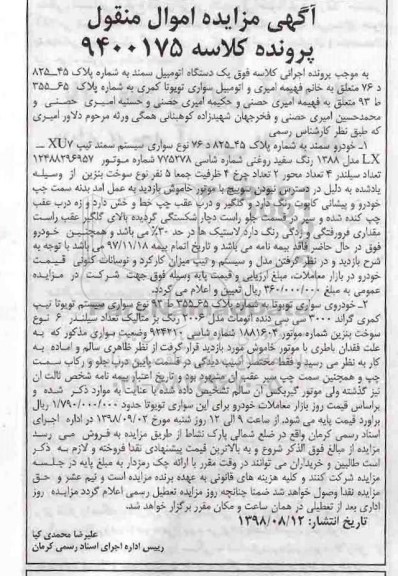 آگهی مزایده اموال منقول
پرونده کلاسه ۹۴۰۰۱۷۵
به موجب پرونده اجرائی کلاسه فوق یک دستگاه اتومبیل سمند به شماره پلاک ۴۵ــ۸۲۵
د ۷۶ متعلق به خانم فهیمه امیری و اتومبیل سواری تویوتا کمری به شماره پلاک ۶۵ــ۳۵۵
ط ۹۳ متعلق به فهیمه امیری حصنی و حکیمه امیری حصنی و حسنیه امیری حصنی و
محمدحسین امیری حصنی و فخرجهان شهیدزاده کوهبنانی همگی ورثه مرحوم دلاور امیری
که طبق نظر کارشناس رسمی
۱ـ خودرو سمند به شماره پلاک ۴۵ــ۸۲۵ د ۷۶ نوع سواری سیستم سمند تیپ XU۷ ــ
LX مدل ۱۳۸۸ رنگ سفید روغنی شماره شاسی ۷۷۵۲۷۸ شماره موتور ۱۲۴۸۸۲۹۶۹۵۷
تعداد سیلندر ۴ تعداد محور ۲ تعداد چرخ ۴ ظرفیت جمعا ۵ نفر نوع سوخت بنزین از وسیله
یادشده به دلیل در دسترس نبودن سوییچ با موتور خاموش بازدید به عمل آمد بدنه سمت چپ
خودرو و پیشانی کاپوت رنگ دارد و گلگیر و درب عقب چپ خط و خش دارد و زه درب عقب
چپ کنده شده و سپر در قسمت جلو راست دچار شکستگی گردیده بالای گلگیر عقب راست
مقداری فرورفتگی و زدگی رنگ دارد لاستیک ها در حد ۳۰٪ می باشد و همچنین خودرو
فوق در حال حاضر فاقد بیمه نامه می باشد و تاریخ اتمام بیمه ۹۷/۱۱/۱۸ می باشد با توجه به
شرح بازدید و در نظر گرفتن مدل و سیستم و تیپ میزان کارکرد و نوسانات کنونی قیمت
خودرو در بازار معاملات، مبلغ ارزیابی و قیمت پایه وسیله فوق جهت شرکت در مزایده
عمومی به مبلغ ۳۶۰/۰۰۰/۰۰۰ ریال تعیین و اعلام می گردد.
۲ـ خودروی سواری تویوتا به شماره پلاک ۶۵ــ۳۵۵ ط ۹۳ نوع سواری سیستم تویوتا تیپ
کمری گراند ۳۰۰۰ سی سی دنده اتومات مدل ۲۰۰۶ رنگ بژ متالیک تعداد سیلندر ۶ نوع
سوخت بنزین شماره موتور ۱۸۸۱۶۰۳ شماره شاسی ۹۲۴۲۱۰ وضعیت سواری مذکور که به
علت فقدان باطری با موتور خاموش مورد بازدید قرار گرفت از نظر ظاهری سالم و آماده به
کار به نظر می رسید و فقط مختصر آسیب دیدگی در قسمت پایین درب جلو و رکاب سمت
چپ و همچنین سمت چپ سپر عقب آن مشهود بود و تاریخ اعتبار بیمه نامه شخص ثالث آن
نیز گذشته ولی موتور گیربکس آن سالم تشخیص داده شده با عنایت به موارد ذکر شده و
براساس قیمت روز بازار معاملات خودرو برای این سواری تویوتا حدود ۱/۷۹۰/۰۰۰/۰۰۰ ریال
برآورد قیمت پایه می شود. از ساعت ۹ الی ۱۲ روز شنبه مورخ ۱۳۹۸/۰۹/۰۲ در اداره اجرای
اسناد رسمی کرمان واقع در ضلع شمالی پارک نشاط از طریق مزایده به فروش می رسد
مزایده از مبالغ فوق الذکر شروع و به بالاترین قیمت پیشنهادی نقدا فروخته و لازم به ذکر
است طالبین و خریداران می توانند در وقت مقرر با ارائه چک رمزدار به مبلغ پایه در جلسه
مزایده شرکت کنند و کلیه هزینه های قانونی به عهده برنده مزایده است و نیم عشر و حق
مزایده نقدا وصول خواهد شد ضمنا چنانچه روز مزایده تعطیل رسمی اعلام گردد مزایده روز
اداری بعد از تعطیلی در همان ساعت و مکان مقرر برگزار خواهد شد.
تاریخ انتشار: ۱۳۹۸/۰۸/۱۲
علیرضا محمدی کیا
رییس اداره اجرای اسناد رسمی کرمان